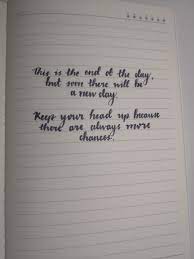 This is the end of the day,
but soon there will be
a new day.
Keep your head up because
there are always more
chances.